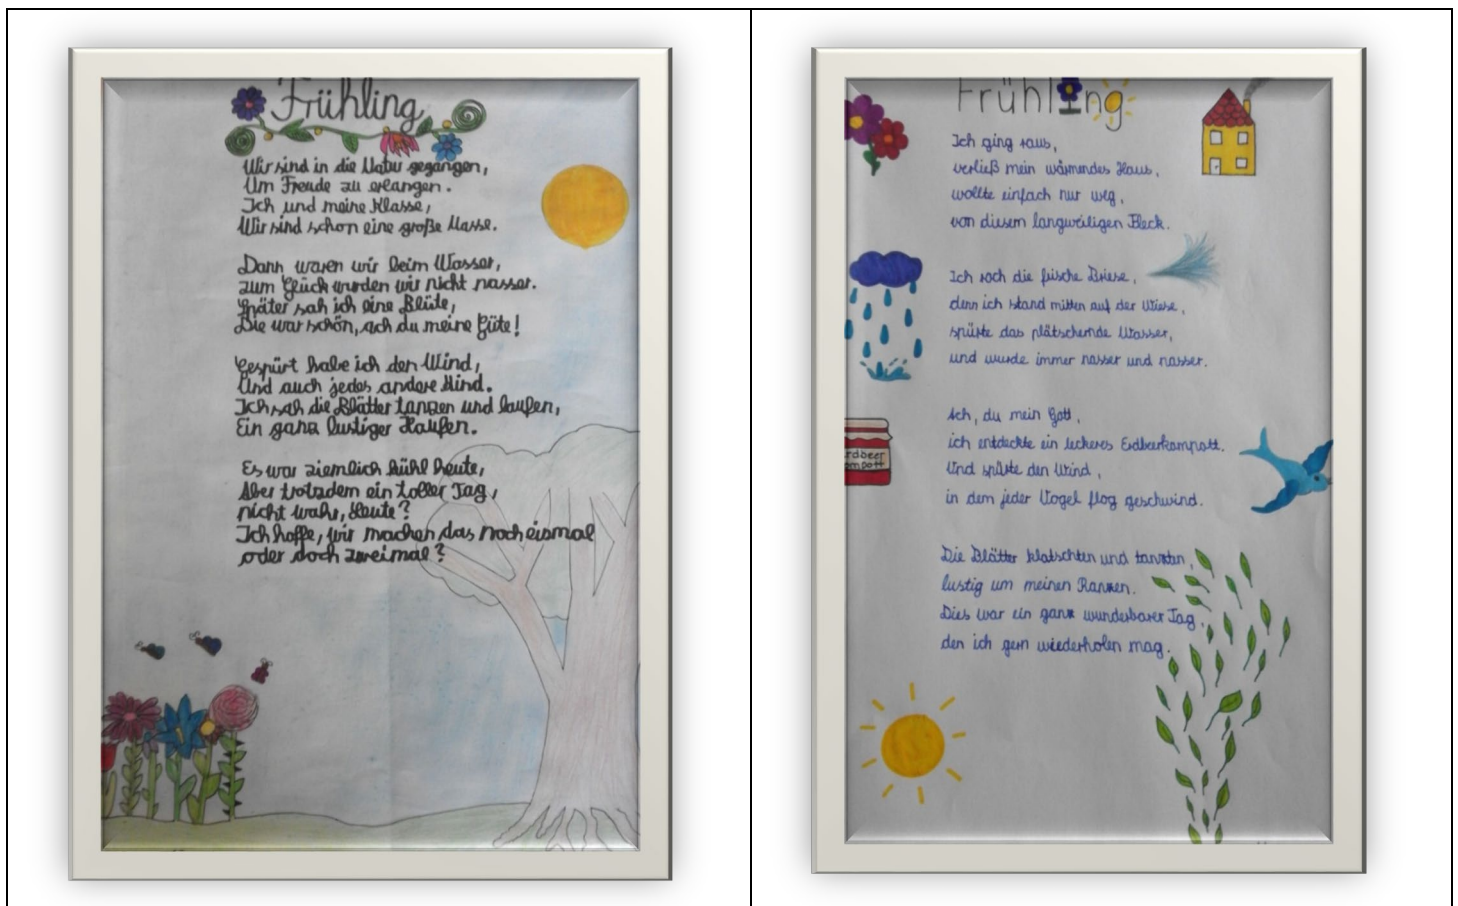 Frühling
Wir sind in die Natur gegangen,
Um Freude zu erlangen.
Ich und meine Klasse,
Wir sind schon eine große Masse.
Dann waren wir beim Wasser,
zum Glück wurden wir nicht nasser.
Später sah ich eine Blüte,
Die war schön, ach du meine Güte!
Gespürt habe ich den Wind,
Und auch jedes andere Kind.
Ich sah die Blätter tanzen und laufen,
Ein ganz lustiger Haufen.
Es war ziemlich kühl heute,
Aber trotzdem ein toller Tag,
nicht wahr, Leute?
Ich hoffe, wir machen das noch eismal
oder doch zweimal?
Frühling
Ich ging raus,
verließ mein wärmendes Haus,
wollte einfach nur weg,
von diesem langweiligen Fleck.
Ich roch die frische Briese,
denn ich stand mitten auf der Wiese,
spürte das plätschernde Wasser,
und wurde immer nasser und nasser.
Ach, du mein Gott,
ich entdeckte ein leckeres Erdbeerkompott.
Und spürte den Wind,
in dem jeder Vogel flog geschwind.
rdbeer
ompott
Die Blätter klatschten und tanzten,
lustig um meinen Ranzen.
Dies war ein ganz wunderbarer Tag,
den ich gern wiederholen mag.